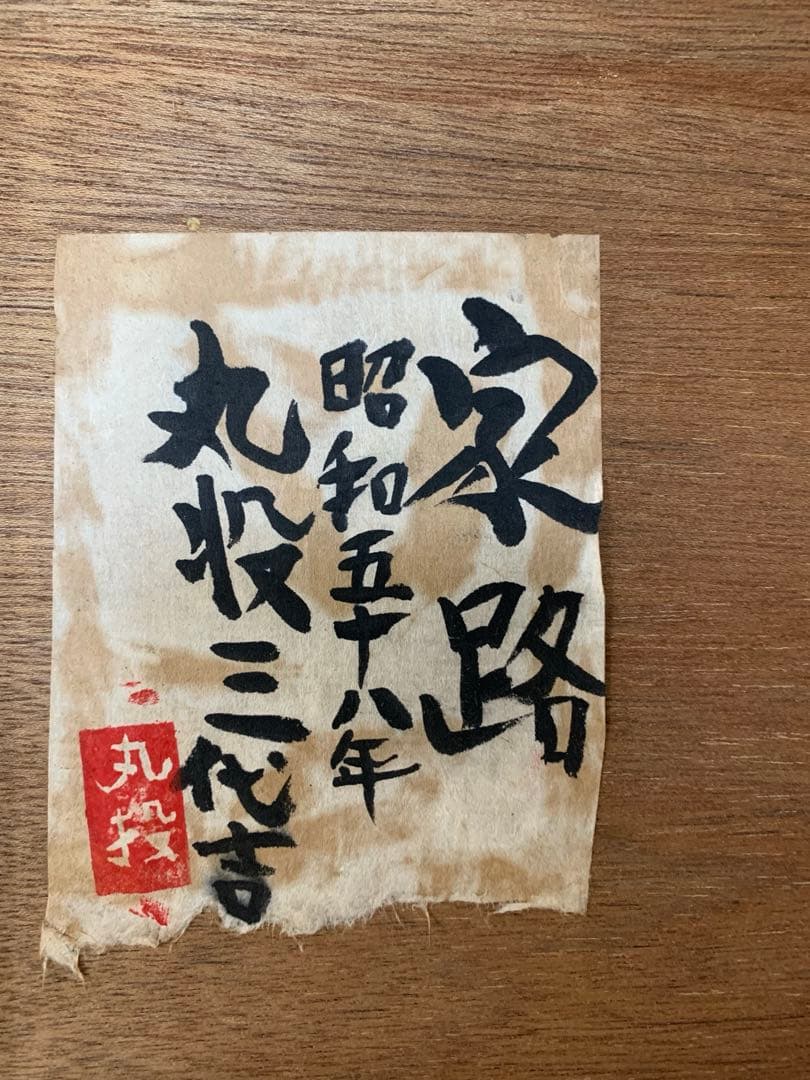 家路
昭和五十八年
丸投三代吉
丸投